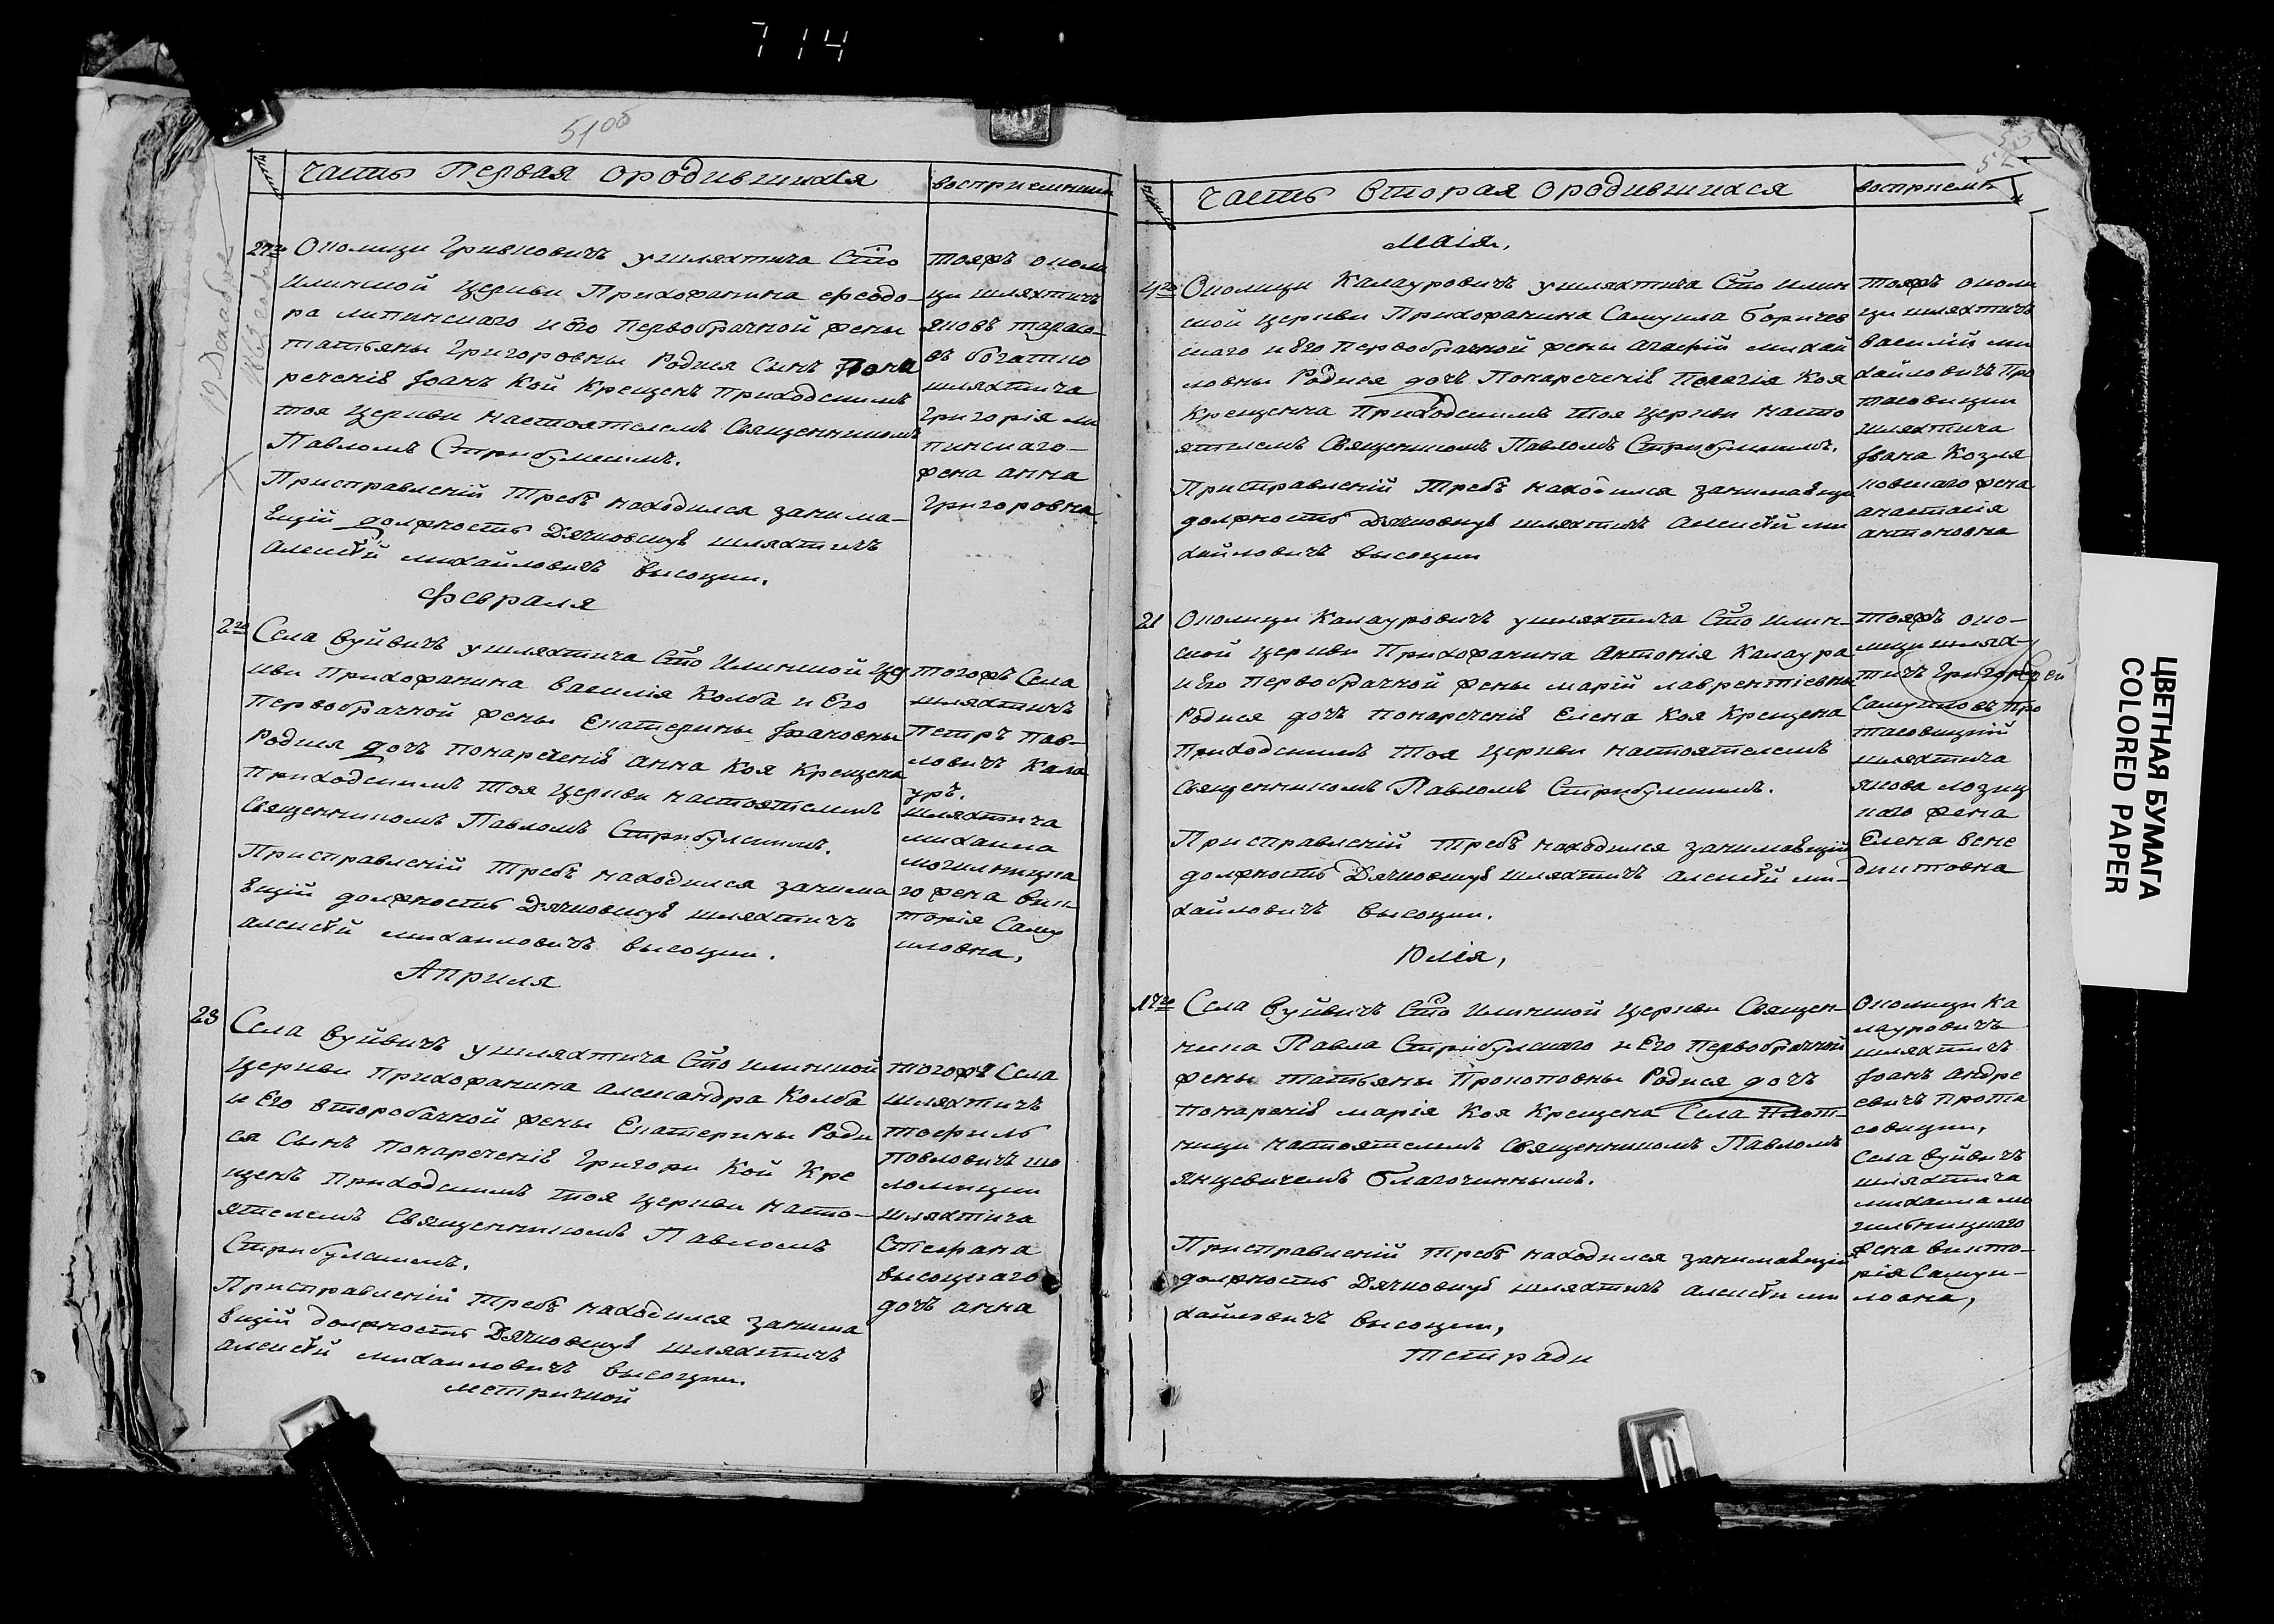 714
51об
Часть Первая ородившихся
восприемники
27го Околицы Гривковичъ ушляхтича Сто
Илинской Церкви Прихожанина Феодо-
ра липинскаго и его Первобрачной жены
татьяны Григоровны Родися Сынъ Пона
реченіе Іоанъ Кой Крещенъ Приходскимъ
тоя Церкви настоятелемъ Священникомъ
Павломъ Стрибулскимъ.
Присправленій Требъ находился занима-
ѣщій должность Дячковскую шляхтичъ
алексѣй михайловичъ высоцки.
тояжъ околи
цы шляхтичъ
яковъ тарасо-
въ богатко
шляхтича
Григорія ли
пинскаго-
жена анна
Григоровна
19 Декабря
Февраля
2го Села вуйвичъ ушляхтича Сто Илинской Цер
кви Прихожанина василія Колба и Его
Первобрачной жены Екатерины Іоановны
Родися дочъ Понареченіѣ анна Коя Крещена
Приходскимъ Тоя Церкви настоятелемъ
Священникомъ Павломъ Стрибулскимъ.
Присправленій Требъ находился занима
ѣщій должность Дячковскую шляхтичъ
алексѣй михаиловичъ высоцки.
тогожъ Села
шляхтичъ
Петръ Пав-
ловичъ Кала
уръ.
шляхтича
михаила
могилницка
го жена вик-
торія Саму
иловна,
Априля
23 Села вуйвичъ ушляхтича Сто илинской
Церкви Прихожанина александра Колба
и Его второбачной жены Екатерины Роди
ся Сынъ Понареченіѣ Григори Кой Кре
щенъ Приходскимъ тоя Церкви насто-
ятелемъ Священникомъ Павломъ
Стрибулскимъ.
Присправленій требъ находился занима
ѣщій должность Дячковскую шляхтичъ
алексѣй михаиловичъ высоцки.
тогожъ Села
шляхтичъ
тофиль
Повловичъ шо
ломицки
шляхтича
Стефана
высоцкаго
дочъ анна
метричной
Часть вторая ородившихся
восприемн
маія,
4го Околицы Калауровичъ ушляхтича Сто илин
ской Церкви Прихожанина Самуила Боричев
скаго и Его Первобрачной жены агафій михай
ловны Родися дочъ Понареченіѣ Пелагія Коя
Крещенна Приходскимъ тоя Церкви насто
ятелемъ Священникомъ Павломъ Стрибулскимъ.
Присправленій Требъ находился занимаѣщи
должность Дячковскую шляхтичъ алексѣй ми
хайловичъ высоцки
тояжъ околи
цы шляхтичъ
василій ми
хайловичъ Про
тасовицки
шляхтича
Іоана Козля
ковскаго жена
анастасія
антоновна
21 Околицы Калауровичъ ушляхтича Сто илин-
ской Церкви Прихожанина Антонія Калаура
и Его первобрачной жены марій лаврентіевны
Родися дочъ понареченіѣ Елена Коя Крещена
Приходскимъ Тоя Церкви настоятелемъ
Священникомъ Павломъ Стрибулскимъ.
Присправленій требъ находился занимаѣщій
должность Дячковскую шляхтичъ алексѣй ми-
хайловичъ высоцки.
тояжъ око-
лицы шлях-
тичъ Григорей
Самуиловъ Про
тасовицкій
шляхтича
якова лозиц
каго жена
Елена вене
диктовна
Юлія,
17го Села вуйвичъ Сто илинской Церкви Священ-
ника Павла Стрибулскаго и Его Первобрачной
жены татьяны Прокоповны Родися дочъ
понареченіѣ марія Коя Крещена Села Плот-
ницы настоятелемъ Священникомъ Павломъ
янцевичемъ благочиннымъ.
Присправленій требъ находился занимаѣщій
должность Дячковскую шляхтичъ алексѣй ми
хайловичъ высоцки,
Околицы Ка
лауровичъ
шляхтичъ
Іоанъ Андре
евичъ прота
совицки,
Села вуйвичъ
шляхтича
михаила мо
гильницкаго
жена викто-
рія Самуи-
ловна,
тетради
ЦВЕТНАЯ БУМАГА
COLORED PAPER